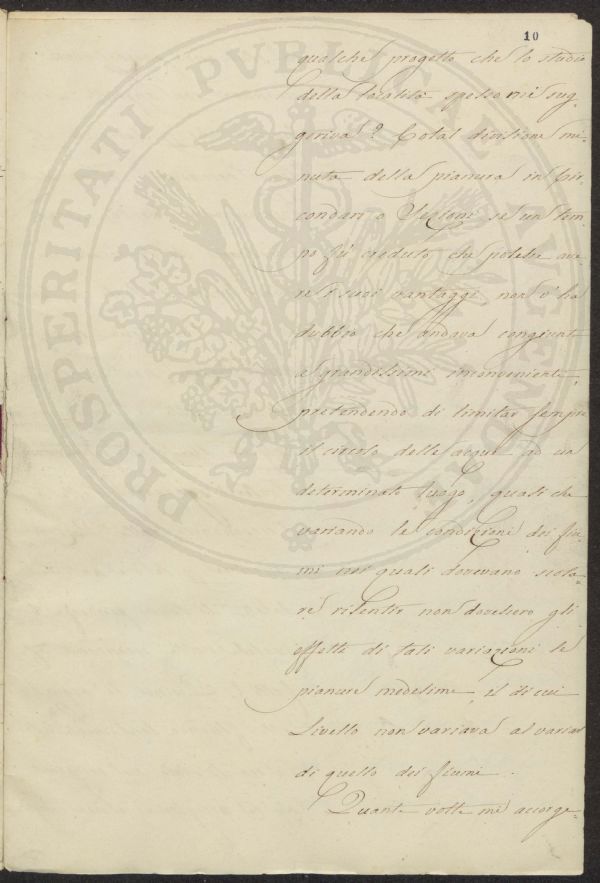 10
qualche progetto che lo studio
della località spesso mi sug-
geriva? Cotal divisione mi-
nuta della pianura in Cir-
condari o Sezioni se un tem-
po fù creduto che potesse ave-
re i suoi vantaggi non v'ha
dubbio che andava congiunt
a grandissimi inconvenienti,
pretendendo di limitar sempre
il circolo delle acque ad un
determinato luogo, quasi che
variando le condizioni dei fiu-
mi nei quali dovevano scola-
re risentir non dovessero gli
effetti di tali variazioni le
pianure medesime, il di cui
Livello non variava al variar
di quello dei fiumi.
Quante volte mi accorge-
PROSPERITATI PVBLICAE AVGENDAE